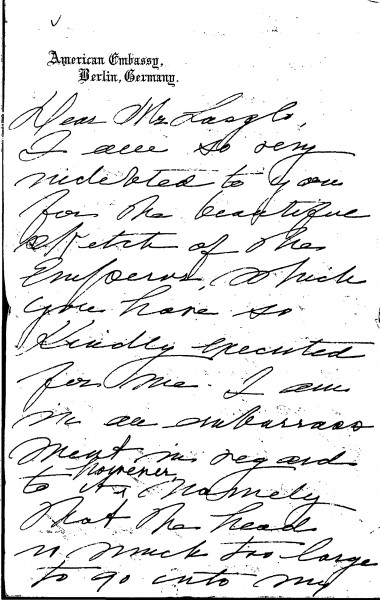 American Embassy,
Berlin, Germany.
Dear Mr Laszlo,
I am so very
indebted to you
for the beautiful
sketch of the
Emperor, which
you have so
kindly executed
for me. I am
in an embarrass
ment in regard
however
to it, namely
that the head
is much too large
to go into my